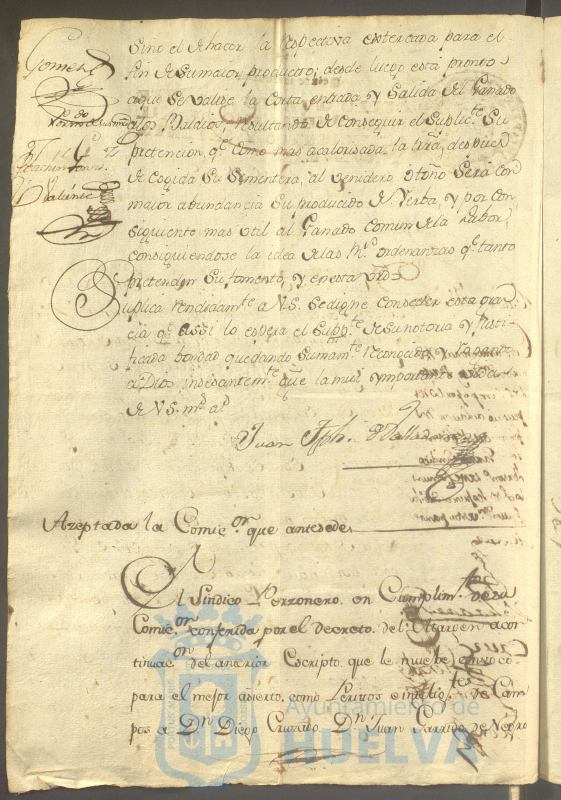 Gomez
Sino el de hacer la respectiva estercada para el
fin de su maior producto; desde luego está pronto
a que se valide la corta entrada y Salida del Ganado
a los Baldíos, resultando de conseguir el Suplic.te Su
pretencion, q.e como mas acalorisada la tirã, despues
de cogida Su Sementera, al venidero otoño Sera con
maior abundancia Su producido de Yerba, y por con
siguiente mas util al Ganado Comun de la Labor,
consiguiendose la idea de las R.s ordenanzas q.e tanto
pretenden Su fomento, y en esta
Suplica rendidam.te a V.S. Se digne conseder esta gra
cia q.e assi lo espera el Supp.te de Su notoria y Justi
ficada bondad quedando Sumam.te reconocido y rogante
a Dios insesantem.te que la mui importante vida
de V.S. m.s a.s
Juan Jph. de Vallad
Azeptada la Comic.on que antesede
El Sindico Perzonero, en Cumplim.to de la
Comic.on conferida por el decreto del a con
tinuac.on del anterior Escripto, que le mueve
para el mejor acierto, como Peritos e intelig.tes de Cam
pos a D.n Diego Cruzado, D.n Juan Garrido de Negro
Ayuntamiento de
HUELVA